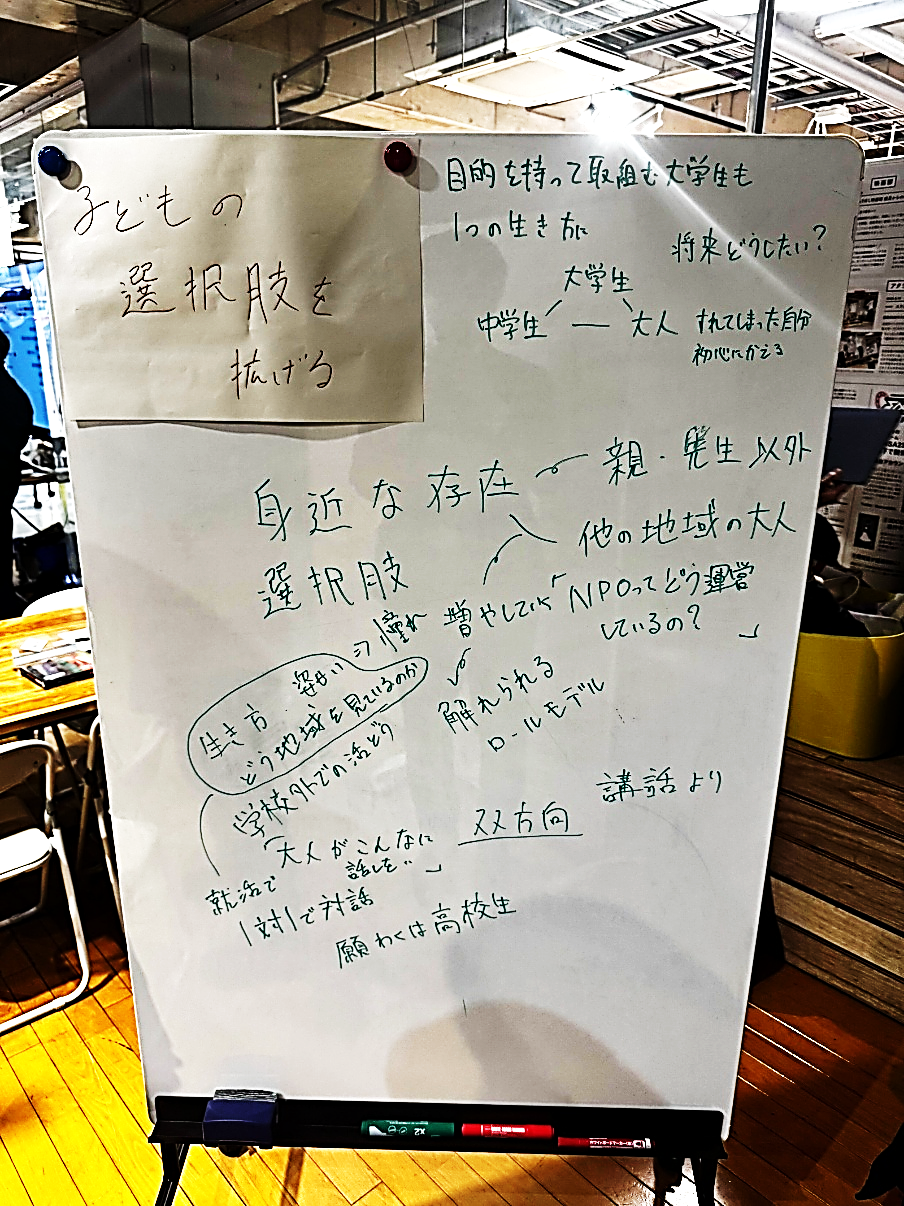 子どもの
選択肢を
拡げる
目的を持って取組む大学生も
1つの生き方に
将来どうしたい?
大学生
中学生 ― 大人
すれてしまった自分
初心にかえる
身近な存在
親・先生以外
他の地域の大人
選択肢
増やしていく
「NPOってどう運営
しているの? 」
憧れ
生き方
どう地域を見ているのか
触れられる
ロールモデル
学校外での活どう
「大人がこんなに
話しを… 」
双方向
講話より
就活で
1対1で対話
願わくは高校生